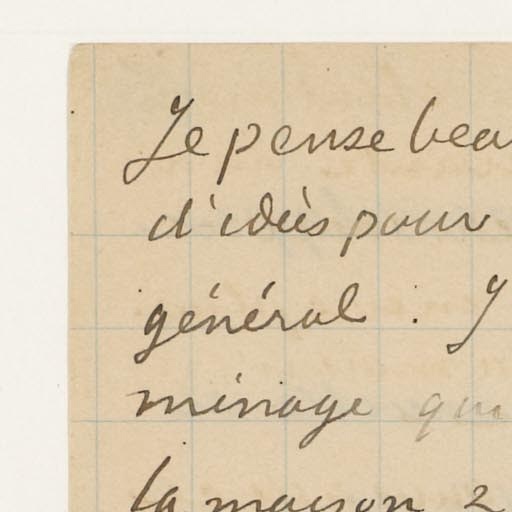 Je pense beau
d'idées pour
général : J
ménage qui
la maison 2